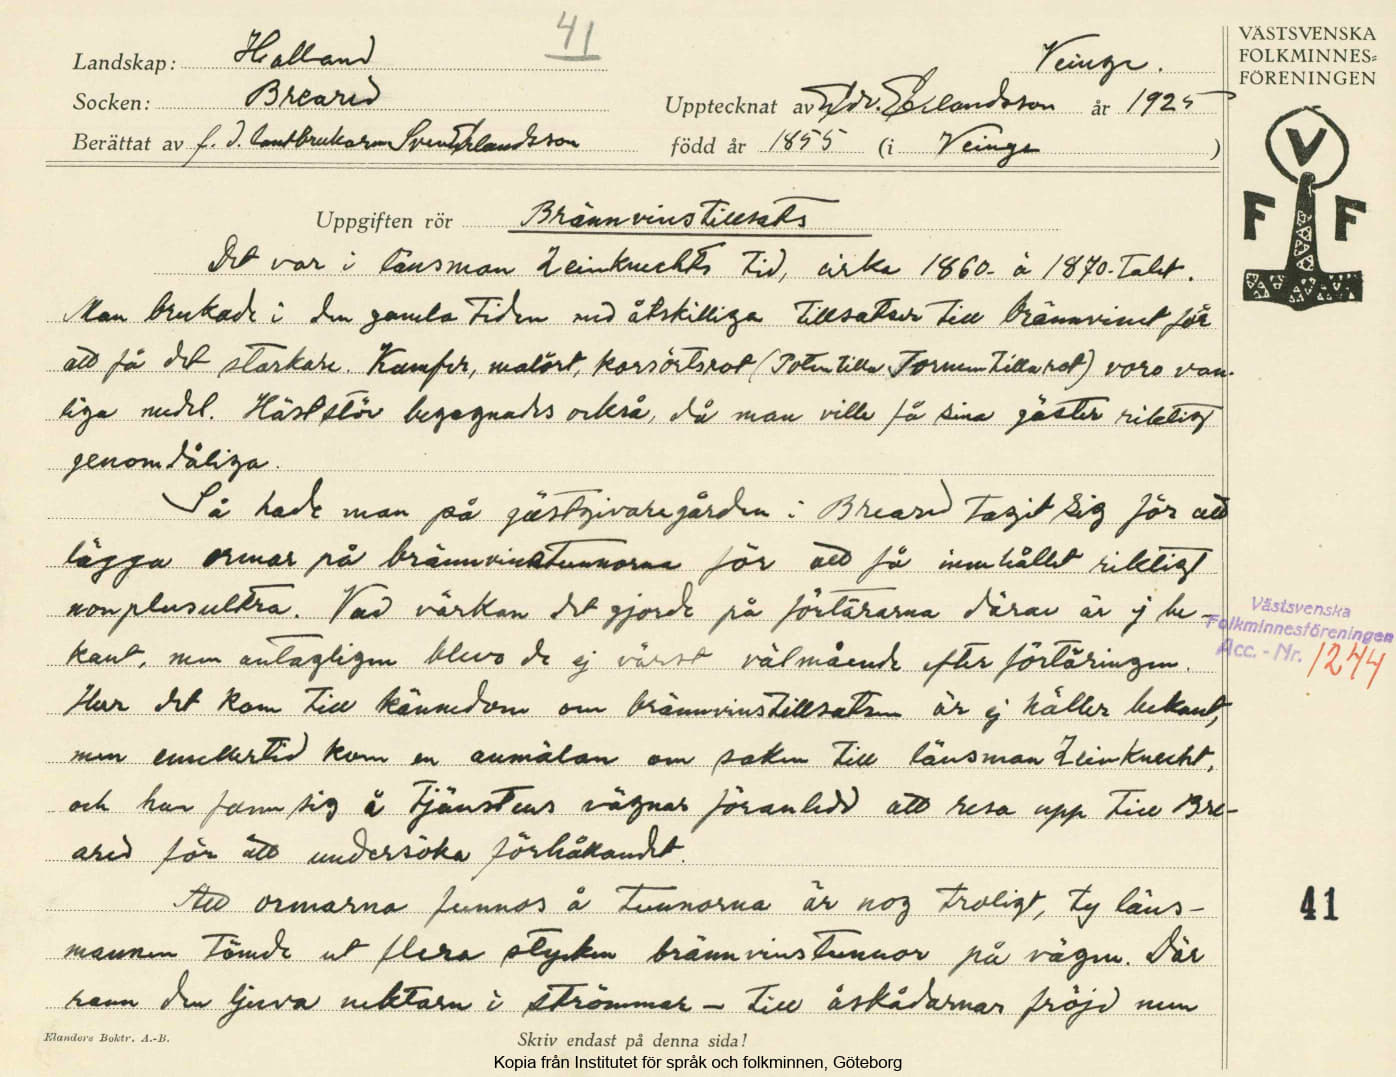 41
VÄSTSVENSKA
FOLKMINNES=
FÖRENINGEN
V
F F
Landskap: Halland
Veinge.
Socken: Breared
Upptecknat av Edv. Erlandsson år 1925
Berättat av f. d. lantbrukaren Sven Erlandsson
född år 1855 (i Veinge )
Uppgiften rör Brännvinstillsats
Det var i länsman Zeinknechts tid, cirka 1860- à 1870-talet.
Man brukade i den gamla tiden med åtskilliga tillsatser till brännvinet för
att få det starkare. Kamfer, malört, korsörtsrot (Potentilla Tormentilla rot) voro van-
liga medel. Hästströv begagnades också, då man ville få sina gäster riktigt
genomdåliga.
Så hade man på gästgivaregården i Breared tagit sig för att
lägga ormar på brännvinstunnorna för att få innehållet riktigt
nonplusultra. Vad värkan det gjorde på förtärarna därav är ej be-
kant, men antagligen blevo de ej värst välmående efter förtäringen.
Hur det kom till kännedom om brännvinstillsatsen är ej häller bekant,
men emellertid kom en anmälan om saken till länsman Zeinknecht,
och han fann sig å tjänstens vägnar föranledd att resa upp till Bre-
ared för att undersöka förhållandet.
Att ormarna funnos å tunnorna är nog troligt, ty läns-
mannen tömde ut flera stycken brännvinstunnor på vägen. Där
rann den ljuva nektarn i strömmar – till åskådarnas fröjd men
Västsvenska
Folkminnesföreningen
Acc. - Nr. 1244
41
Elanders Boktr. A.-B.
Skriv endast på denna sida!
Kopia från Institutet för språk och folkminnen, Göteborg